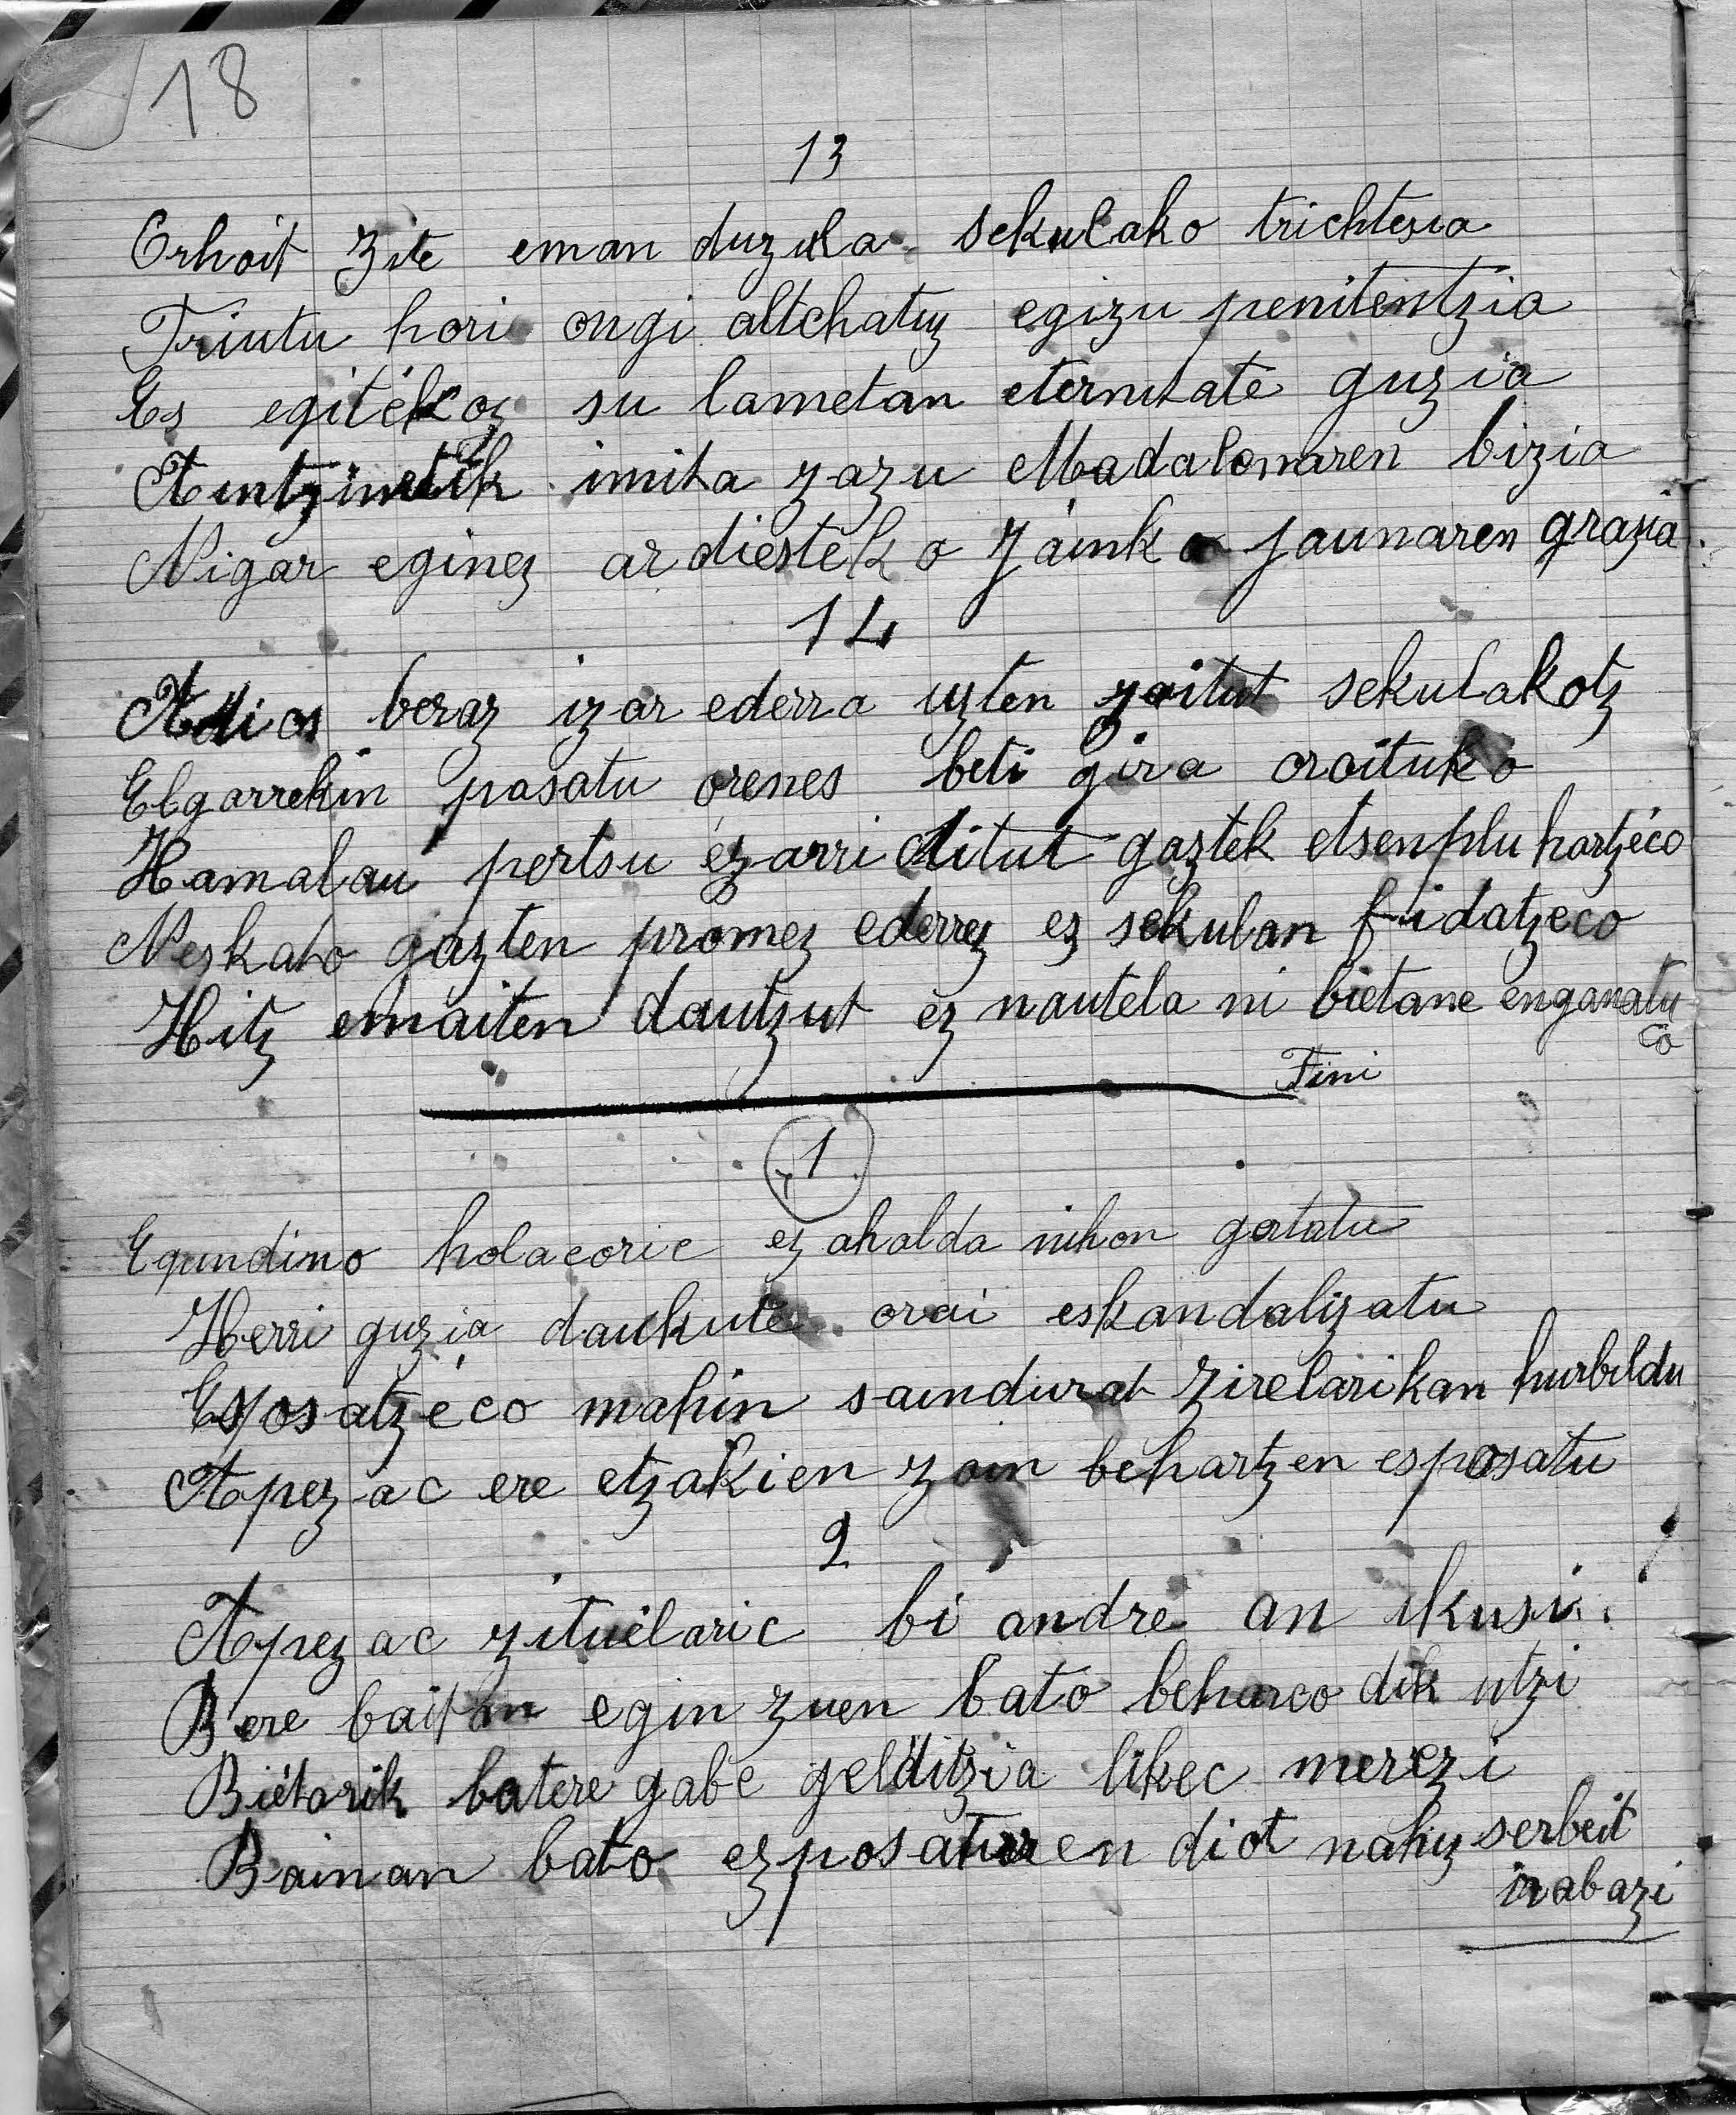 18
13
Orhoit zite eman duzula sekulako trichtesia
Triutu hori ongi altchatuz egizu penitentzia
Es egitekoz su lametan eternitate guzia
Aintzinetik imita zazu Madalenaren bizia
Nigar eginez ardiesteko Jainko jaunaren grazia.
14
Adios beraz izar ederra uzten zaitut sekulakotz
Elgarrekin pasatu orenes beti gira oroituko
Hamalau pertsu ezarri ditut gaztek etsenplu hartzeco
Neskato gazten promez ederrez ez sekulan fidatzeco
Hitz emaiten dautzut ez nautela ni bietane enganatu
co
Fini
1
Egundino holacoric ez ahalda nihon gertatu
Herri guzia daukute orai eskandalizatu
Esposatzeco mahin saindurat zirelarikan hurbildu
Apezac ere etzakien zoin behartzen esposatu
2
Apezac zituelaric bi andre an ikusi.
Bere baitan egin zuen bato beharco dik utzi
Bietarik batere gabe gelditzia likec merezi
Bainan bato ezposaturen diot nahiz serbeit
irabazi